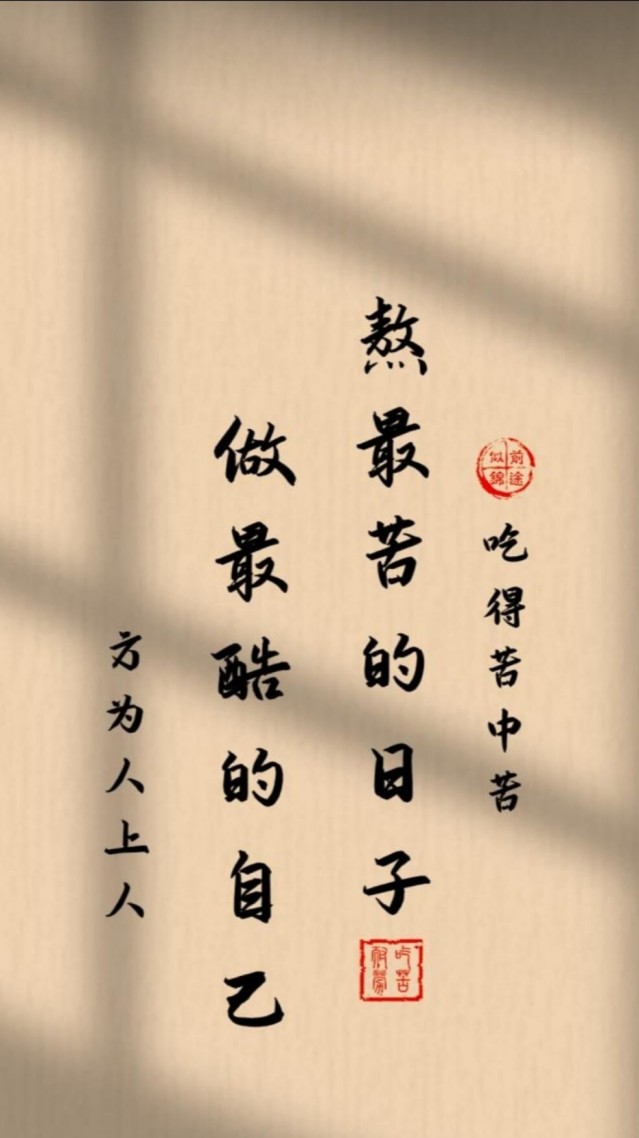 前途
似錦
吃得苦中苦
熬最苦的日子
吃苦
耐勞
做最酷的自己
方为人上人